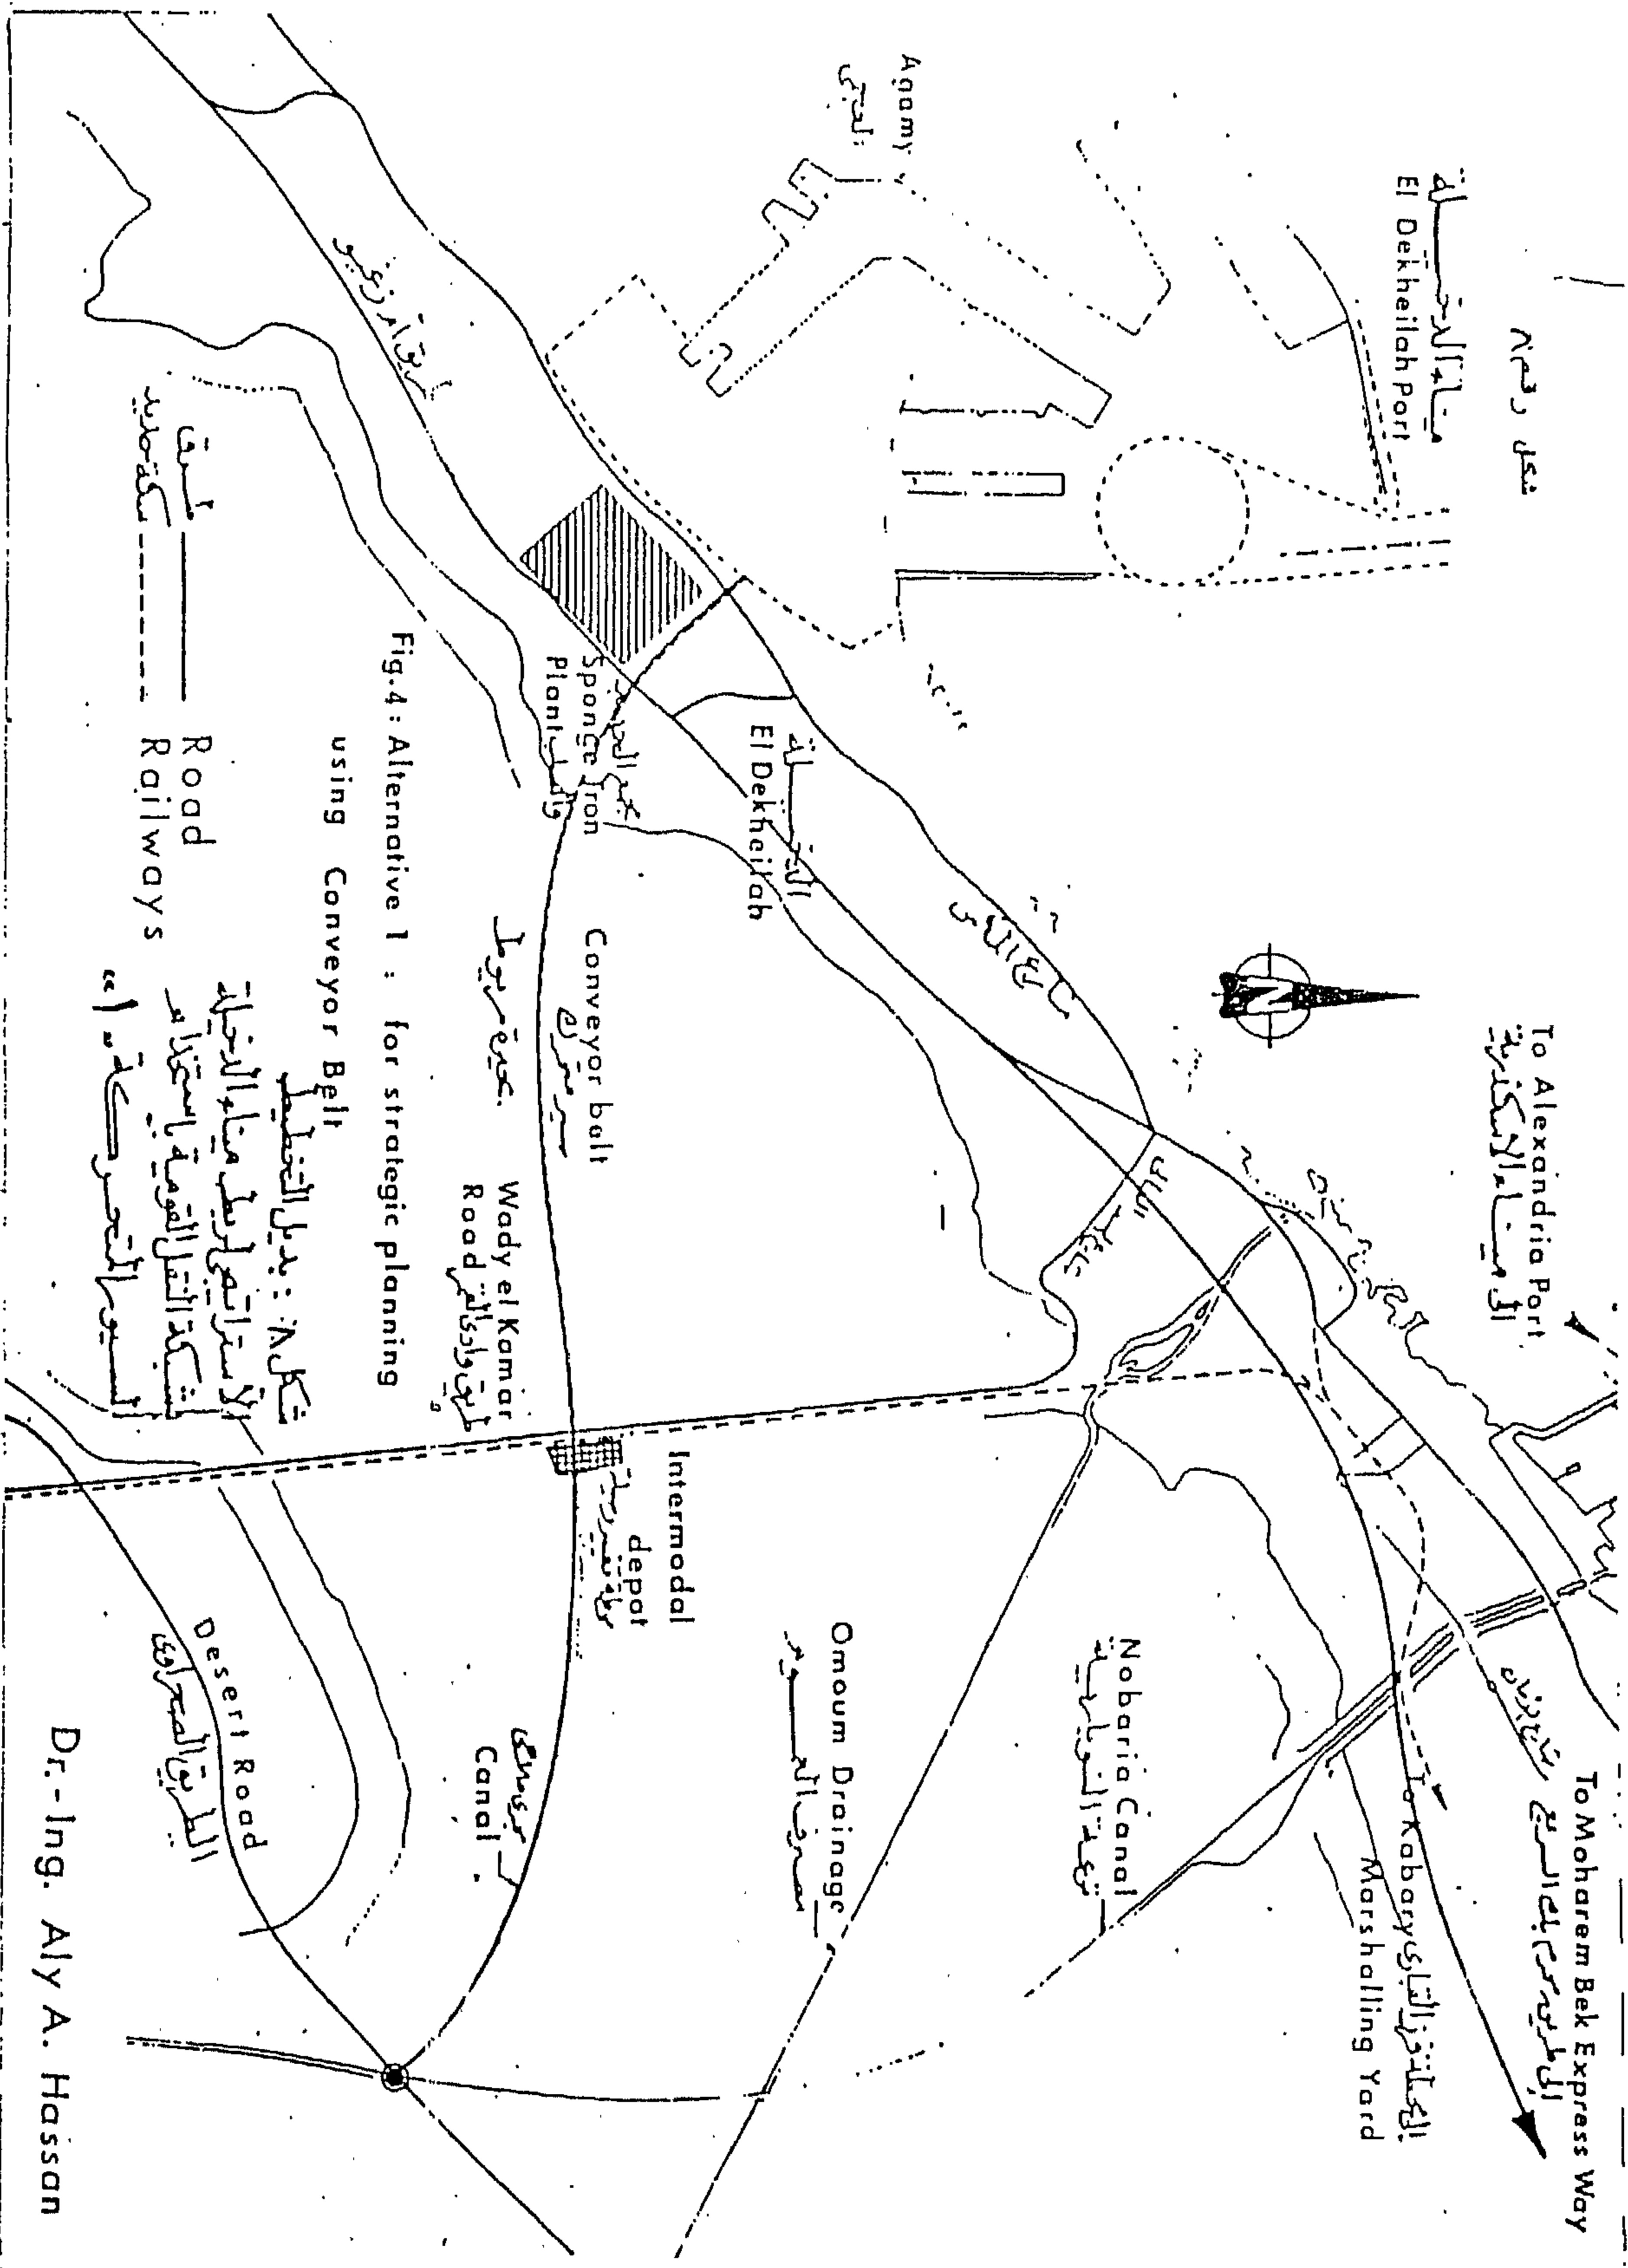 شكل رقم ٨
ميناء الدخيلة
El Dekheilah Port
Agamy
العجمى
To Alexandria Port
الى ميناء الاسكندرية
To Moharem Bek Express Way
إلى طريق محرم بك السريع
To Kabary
Marshalling Yard
Nobaria Canal
ترعة النوبارية
Omoum Drainage
مصرف العموم
El Dekheilah
الدخيلة
Sponge Iron
Plant
Conveyor balt
سير متحرك
Intermodal
depot
Wady el Kamar
Road
طريق وادى القمر
Canal
Desert Road
الطريق الصحراوى
Fig.4: Alternative 1 : for strategic planning
using Conveyor Belt
شكل ٨ : بديل التخطيط
الاستراتيجى لربط ميناء الدخيلة
بشبكة النقل القومية باستخدام
السيور المتحركة
Road
طرق
Railways
سكة حديد
Dr.-Ing. Aly A. Hassan